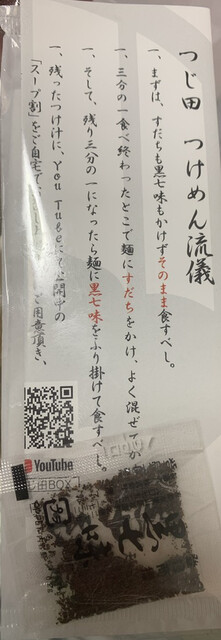 つじ田 つけめん流儀
一、まずは、すだちも黒七味もかけずそのまま食すべし。
一、三分の一食べ終わったところで麺にすだちをかけ、よく混ぜて
一、そして、残り三分の一になったら麺に黒七味をふり掛けて食すべし。
一、残ったつけ汁に、YouTubeにて公開中の
「スープ割」をご自宅で ご用意頂き、
YouTube
BOX